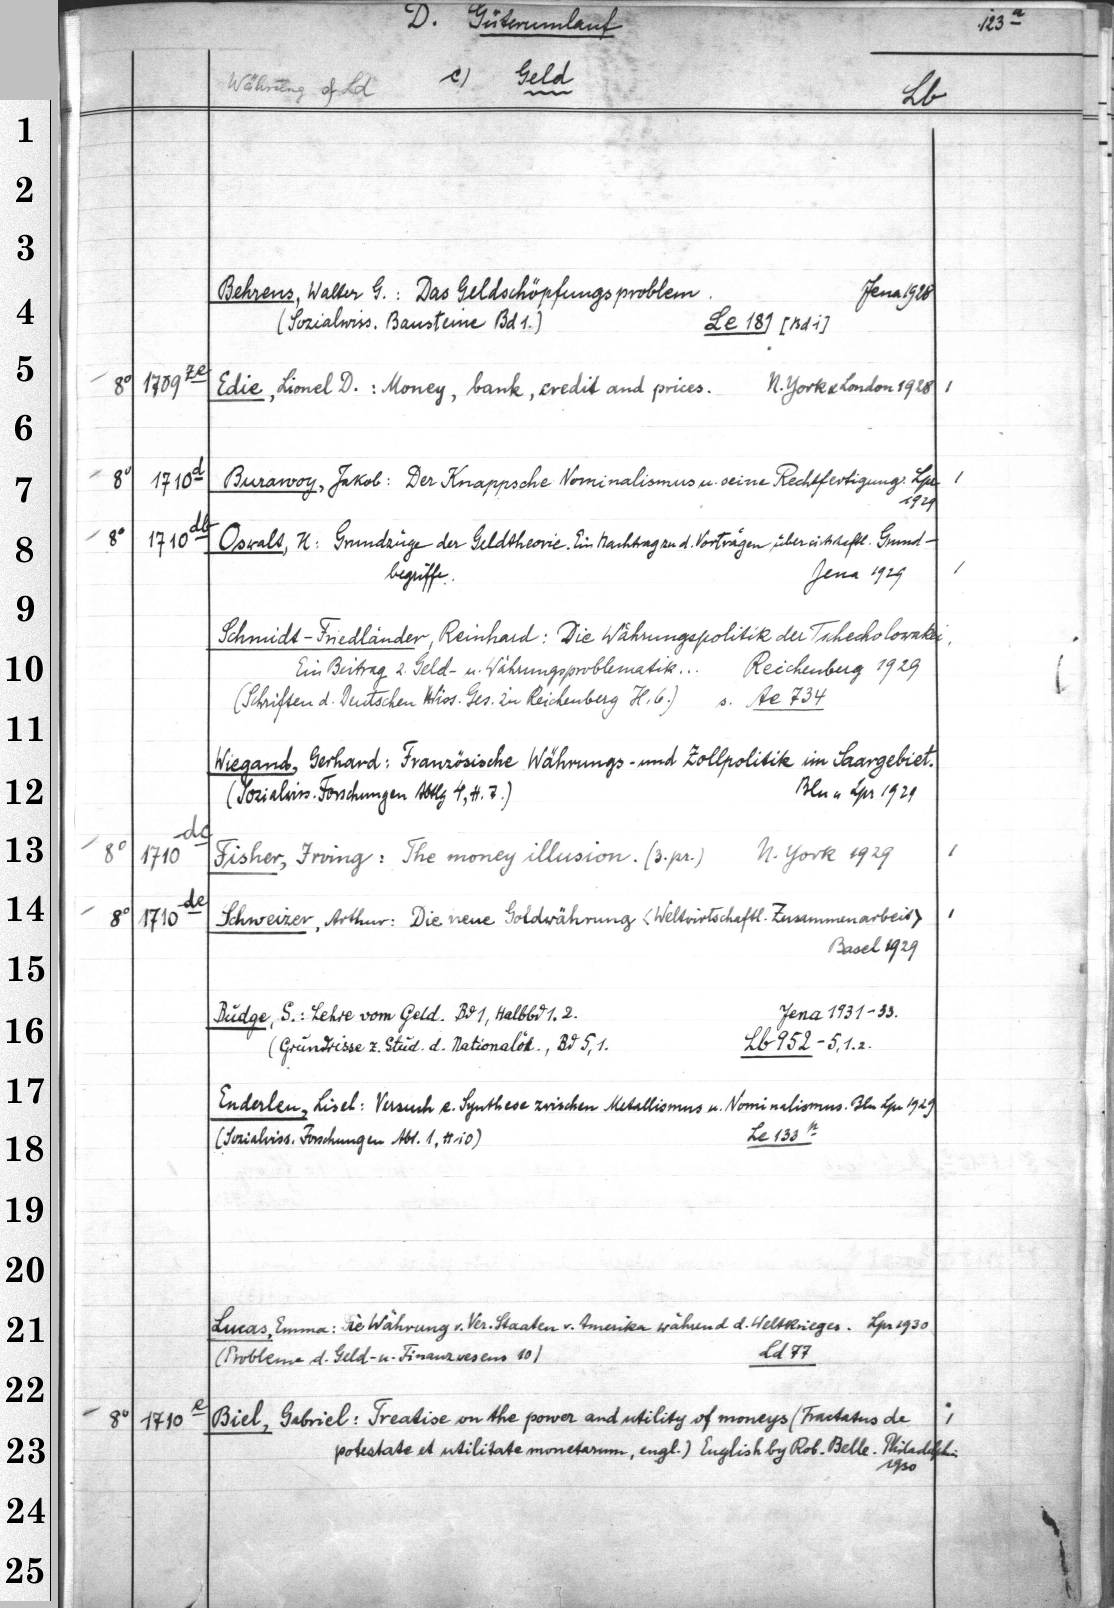 D. Güterumlauf 123 a
Währung cf Ld c) Geld Lb
1
2
3
Behrens, Walter G.: Das Geldschöpfungsproblem. Jena 1928
4 (Sozialwiss. Bausteine Bd 1.) Le 181 [Bd 1]
5 8° 1709 ze Edie, Lionel D.: Money, bank, credit and prices. N. York & London 1928 1
6
7 8° 1710 d Burawoy, Jakob: Der Knappsche Nominalismus u. seine Rechtfertigung. Lpz 1
1929
8 8° 1710 db Oswalt, H: Grundzüge der Geldtheorie. Ein Nachtrag zu d. Vorträgen über wirtschaftl. Grund-
begriffe. Jena 1929 1
9
Schmidt-Friedländer, Reinhard: Die Währungspolitik der Tschecholowakei.
10 Ein Beitrag z. Geld- u. Währungsproblematik... Reichenberg 1929
(Schriften d. Deutschen Wiss. Ges. in Reichenberg H. 6.) s. Ae 734
11
Wiegand, Gerhard: Französische Währungs- und Zollpolitik im Saargebiet.
12 (Sozialwiss. Forschungen Abtlg 4, H. 7.) Bln u Lpz 1929
13 8° 1710 dc Fisher, Irving: The money illusion. (3. pr.) N. York 1929 1
14 8° 1710 de Schweizer, Arthur: Die neue Goldwährung <Weltwirtschaftl. Zusammenarbeit> 1
Basel 1929
15
Budge, S.: Lehre vom Geld. Bd 1, Halbbd 1. 2. Jena 1931-33.
16 (Grundrisse z. Stud. d. Nationalök., Bd 5, 1. Lb 952 - 5,1.2.
17
Enderlen, Lisel: Versuch e. Synthese zwischen Metallismus u. Nominalismus. Bln Lpz 1929
18 (Sozialwiss. Forschungen Abt. 1, H 10) Le 133
19
20
21 Lucas, Emma: Die Währung v. Ver. Staaten v. Amerika während d. Weltkrieges. Lpz 1930
(Probleme d. Geld- u. Finanzwesens 10) Ld 77
22
8° 1710 e Biel, Gabriel: Treatise on the power and utility of moneys (Tractatus de 1
23 potestate et utilitate monetarum, engl.) English by Rob. Belle. Philadelph.
1930
24
25